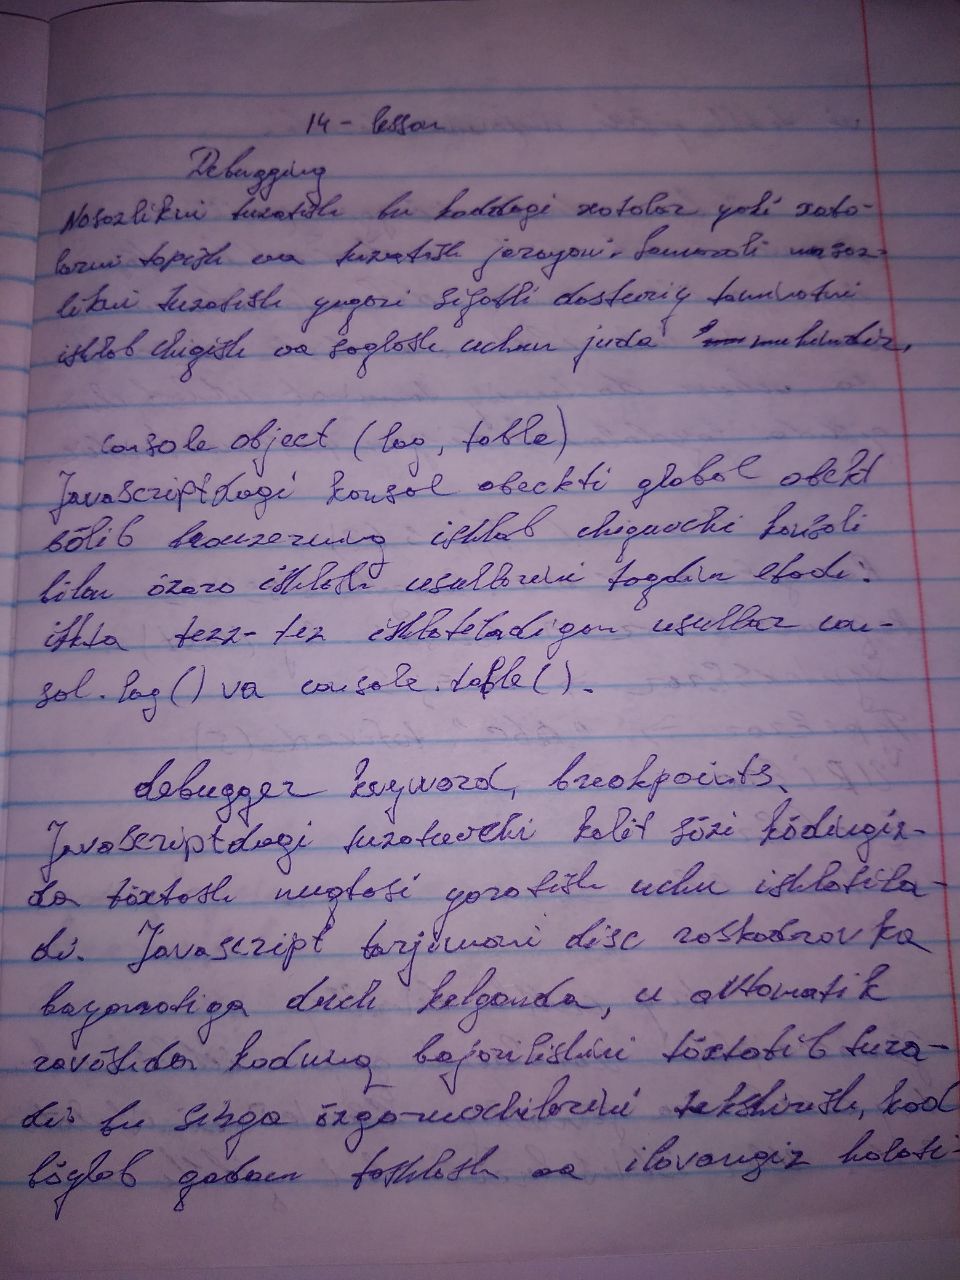 14 - lesson
Debugging
Nosozlikni tuzatish bu koddagi xatolar yoki xato-
larni topish va tuzatish jarayoni. Samarali nosoz-
likni tuzatish yuqori sifatli dasturiy taminotni
ishlab chiqish va saqlash uchun juda muhimdir.
console object (log, table)
Javascriptdagi konsol obeckti global obekt
bõlib brauzerning ishlab chiquvchi konsoli
bilan õzaro ishlash usullarini taqdim etadi.
ikkta tezz-tez ishlatiladigan usullar con-
sol.log() va console.table().
debugger keyword, breakpoints.
Javascriptdagi tuzatuvchi kalit sõzi kõdingiz-
da tõxtash nuqtasi yaratish uchu ishlatila-
di. Javascript tarjimoni disc raskadrovka
bayonotiga duch kelganda, u avtomatik
ravishda kodning bajarilishini tõxtatib tura-
di bu sizga õzgaruvchilarini tekshirish, kod
bõylab qadam tashlash va ilovangiz holati-